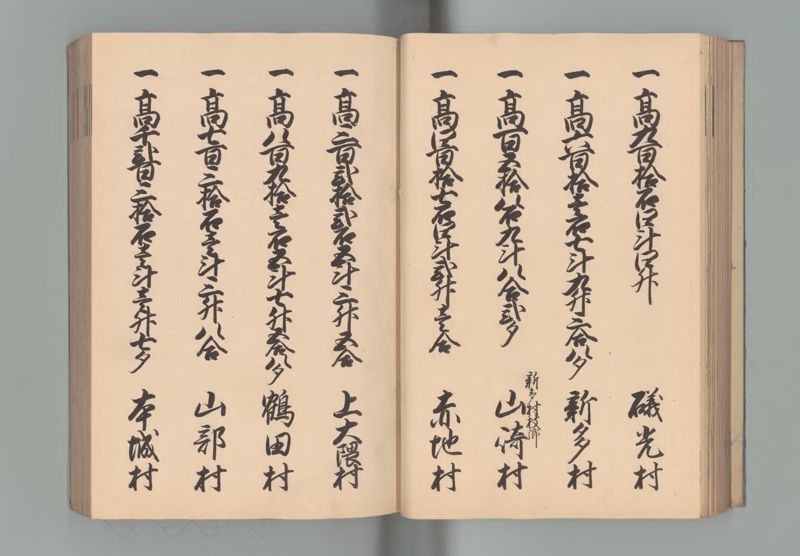 一高九百拾石四斗四升 磯光村
一高六百拾壱石七斗九升六合八夕 新多村
一高百五拾八石九斗八合弐夕 新多村枝郷 山倚村
一高四百拾七石四斗弐升壱合 赤地村
一高三百弐拾弐石五斗三升五合 上大隈村
一高八百九拾壱石五斗七升五合八夕 鶴田村
一高七百三拾石壱斗三升八合 山部村
一高千弐百三拾石壱斗壱升七夕 本城村